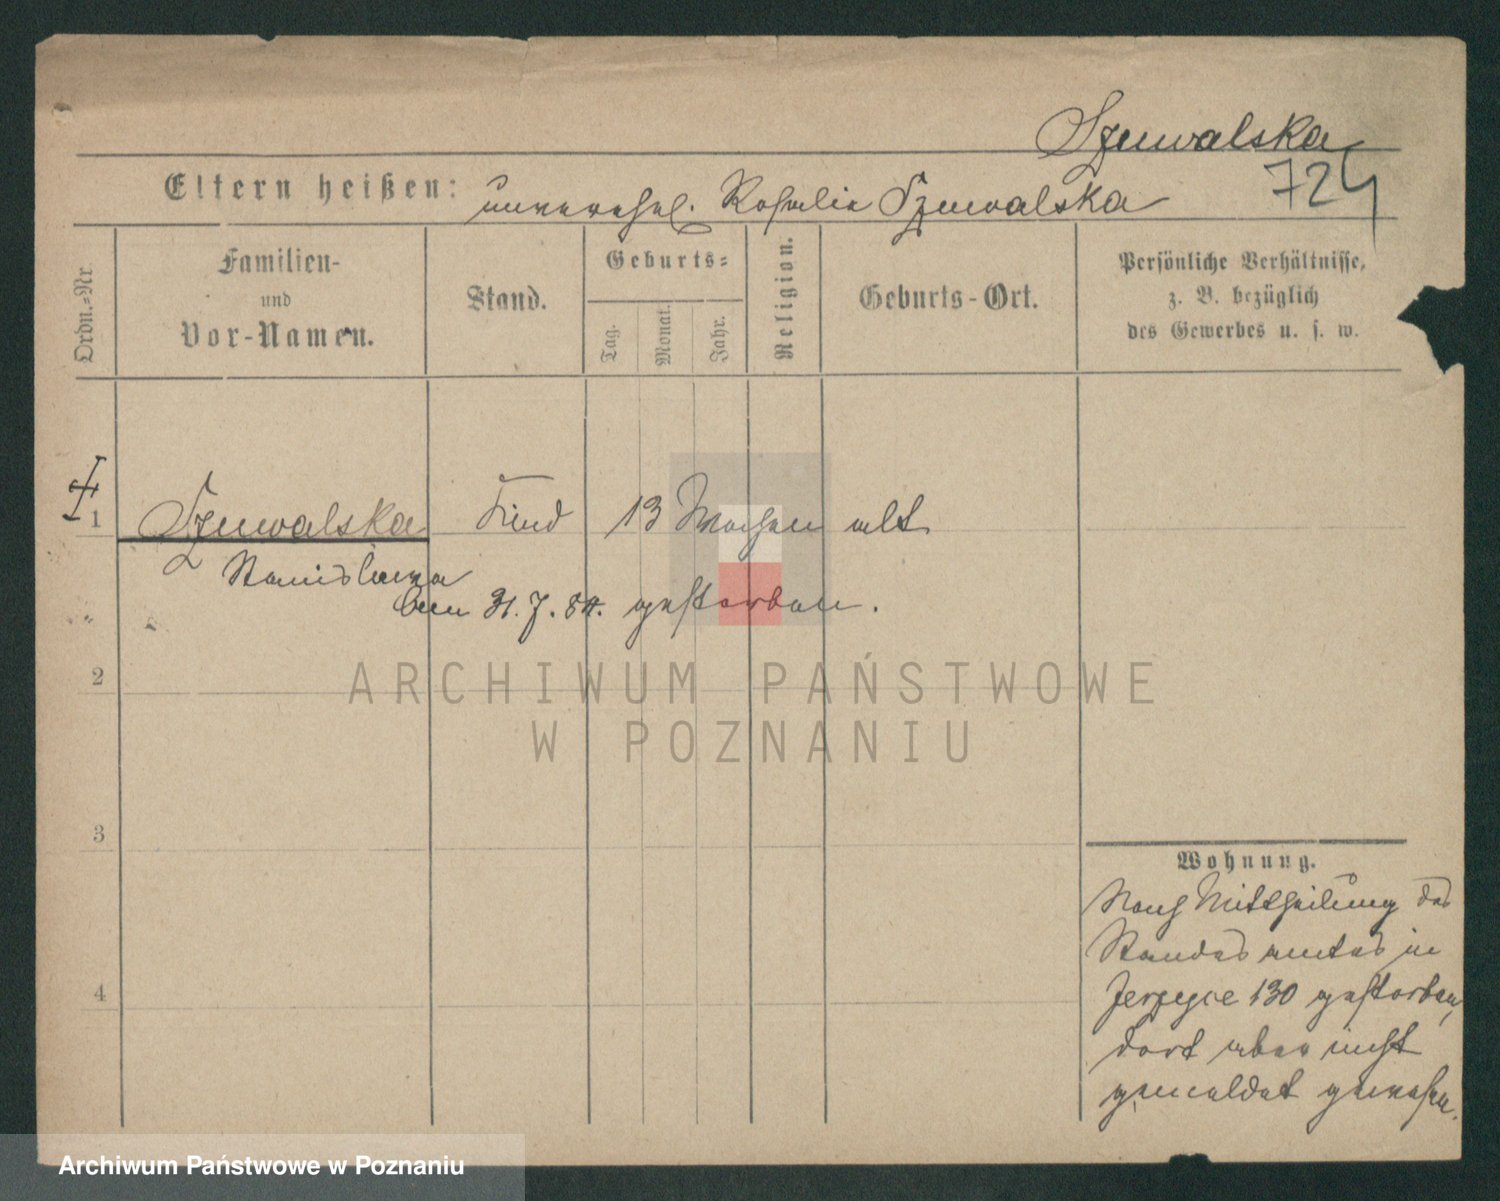 Szuwalska
724
Eltern heißen: unverehel. Rosalie Szuwalska
Ordn.=Nr
Familien-
und
Vor-Namen.
Stand.
Geburts=
Tag.
Monat.
Jahr.
Religion.
Geburts-Ort.
Persönliche Verhältnisse,
z. B. bezüglich
des Gewerbes u. s. w.
1 Szuwalska Kind 13 Wochen alt
Stanislawa
am 31. 7. 84. gestorben.
2
ARCHIWUM PAŃSTWOWE
W POZNANIU
3
4
Wohnung.
Nach Mittheilung des
Standesamtes in
Jerzyce 130 gestorben,
dort aber nicht
gemeldet gewesen.
Archiwum Państwowe w Poznaniu